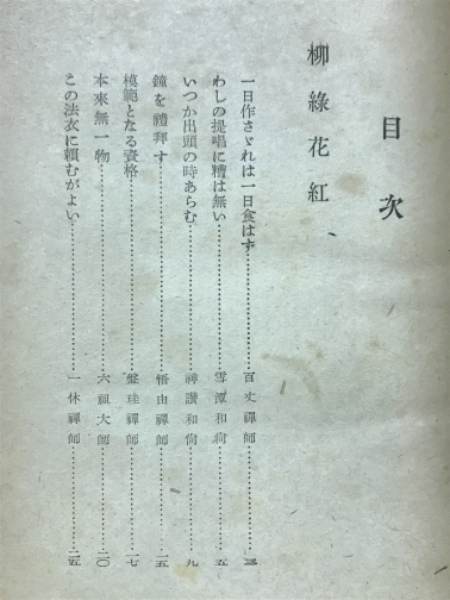 目次
柳綠花紅
一日作さゞれは一日食はず……百丈禪師……三
わしの提唱に糟は無い……雪潭和尙……五
いつか出頭の時あらむ……神讚和尙……九
鐘を禮拜す……悟由禪師……一五
模範となる資格……盤珪禪師……一七
本來無一物……六祖大師……二〇
この法衣に賴むがよい……一休禪師……二五